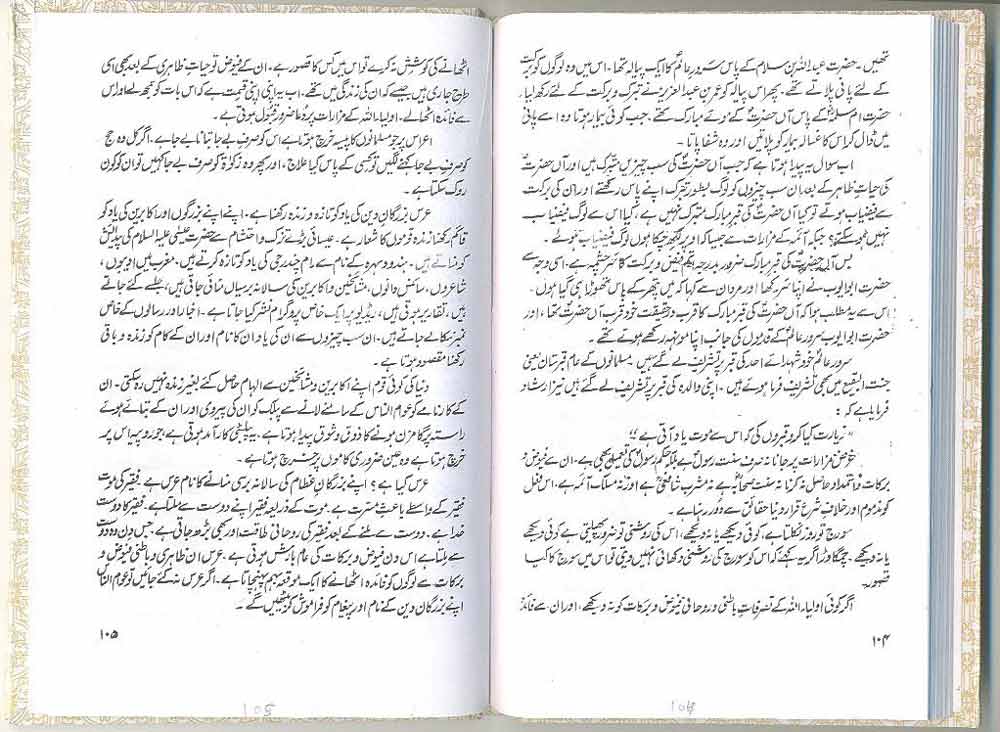 تھیں ۔ حضرت عبداللہ بن سلام کے پاس سرورِ عالمؐ کا ایک پیالہ تھا ۔ اس میں وہ لوگوں کو برکت
کے لئے پانی پلاتے تھے ۔ پھر اس پیالہ کو عمر بن عبدالعزیز نے تبرک و برکت کے لئے رکھ لیا ۔
حضرت ام سلمہؓ کے پاس آں حضرتؐ کے موئے مبارک تھے ۔ جب کوئی بیمار ہوتا وہ اسے پانی
میں ڈال کر اس کا غسالہ بیمار کو پلاتیں اور وہ شفا پاتا ۔
اب سوال یہ پیدا ہوتا ہے کہ جب آں حضرتؐ کی سب چیزیں متبرک ہیں اور آں حضرتؐ
کی حیاتِ ظاہر کے بعد ان سب چیزوں کو لوگ بطورِ تبرک اپنے پاس رکھتے اور ان کی برکت
سے فیضیاب ہوئے تو کیا آں حضرتؐ کی قبرِ مبارک متبرک نہیں ہے ، کیا اس سے لوگ فیضیاب
نہیں ہو سکتے ؟ جبکہ آئمہ کے مزارات سے جیسا کہ اوپر لکھ چکا ہوں لوگ فیضیاب ہوئے ۔
پس آں حضرتؐ کی قبرِ مبارک ضرور بدرجہ اتم فیض و برکت کا سرچشمہ ہے ، اسی وجہ سے
حضرت ابو ایوب نے اپنا سر رکھا اور مروان سے کہا کہ میں پتھر کے پاس تھوڑا ہی گیا ہوں ۔
اس سے یہ مطلب ہوا کہ آں حضرتؐ کی قبرِ مبارک کا قرب در حقیقت خود قربِ آں حضرتؐ تھا ، اور
حضرت ابو ایوب سرورِ عالمؐ کے قدموں کی جانب اپنا مونہہ رکھے ہوئے تھے
سرورِ عالمؐ خود شہدائے احد کی قبر پر تشریف لے گئے ہیں ۔ مسلمانوں کے عام قبرستان یعنی
جنت البقیع میں بھی تشریف فرما ہوئے ہیں ۔ اپنی والدہ کی قبر پر تشریف لے گئے ہیں نیز ارشاد
فرمایا ہے کہ :
" زیارت کیا کرو قبروں کی کہ اس سے موت یاد آتی ہے "
غرض مزارات پر جانا نہ صرف سنتِ رسولؐ ہے بلکہ حکمِ رسولؐ کی تعمیل بھی ہے ۔ ان سے فیوض و
برکات و استمداد حاصل نہ کرنا نہ سنتِ صحابہؓ ہے نہ مشربِ شافعیؒ ہے اور نہ مسلکِ آئمہ ہے ۔ اس فعل
کو مذموم اور خلافِ شرع قرار دینا حقائق سے دور رہنا ہے ۔
سورج تو روز نکلتا ہے ، کوئی دیکھے یا نہ دیکھے ، اس کی روشنی تو ضرور پھیلتی ہے کوئی دیکھے
یا نہ دیکھے ۔ چمگادڑ اگر یہ کہے کہ اس کو سورج کی روشنی دکھائی نہیں دیتی تو اس میں سورج کا کیا
قصور ۔
اگر کوئی اولیاء اللہ کے تصرفاتِ باطنی و روحانی فیوض و برکات کو نہ دیکھے ، اور ان سے فائدہ
۱۰۴
104
اٹھانے کی کوشش نہ کرے تو اس میں کس کا قصور ہے ۔ ان کے فیوض تو حیاتِ ظاہری کے بعد بھی اسی
طرح جاری ہیں جیسے کہ ان کی زندگی میں تھے ۔ اب یہ اپنی اپنی قسمت ہے کہ اس بات کو سمجھ لے اور اس
سے فائدہ اٹھالے ۔ اولیاء اللہ کے مزارات پر دعا ضرور قبول ہوتی ہے ۔
اعراس پر جو مسلمانوں کا پیسہ خرچ ہوتا ہے اس کو صرفِ بے جا بتانا بے جا ہے ۔ اگر کل وہ حج
کو صرفِ بے جا کہنے لگیں تو کسی کے پاس کیا علاج ، اور پھر وہ زکوٰۃ کو صرفِ بے جا کہیں تو ان کو کون
روک سکتا ہے ۔
عرس بزرگانِ دین کی یاد کو تازہ و زندہ رکھنا ہے ۔ اپنے اپنے بزرگوں اور اکابرین کی یاد کو
قائم رکھنا زندہ قوموں کا شعار ہے ۔ عیسائی بڑے تزک و احتشام سے حضرت عیسٰی علیہ السلام کی پیدائش
کو مناتے ہیں ۔ ہندو دسہرہ کے نام سے رام چندر جی کی یاد کو تازہ کرتے ہیں ۔ مغرب میں ادیبوں ،
شاعروں ، سائنس دانوں ، مشائخین و اکابرین کی سالانہ برسیاں منائی جاتی ہیں ، جلسے کئے جاتے
ہیں ، تقاریر ہوتی ہیں ، ریڈیو پر ایک خاص پروگرام نشر کیا جاتا ہے ۔ اخبار اور رسالوں کے خاص
نمبر نکالے جاتے ہیں ۔ ان سب چیزوں سے ان کی یاد ان کا نام اور ان کے کام کو زندہ و باقی
رکھنا مقصود ہوتا ہے ۔
دنیا کی کوئی قوم اپنے اکابرین و مشائخین سے الہام حاصل کئے بغیر زندہ نہیں رہ سکتی ۔ ان
کے کارنامے کو عوام الناس کے سامنے لانے سے پبلک کو ان کی پیروی اور ان کے بتائے ہوئے
راستہ پر گامزن ہونے کا ذوق و شوق پیدا ہوتا ہے ۔ یہ پبلسٹی کارآمد ہوتی ہے ، جو روپیہ اس پر
خرچ ہوتا ہے وہ عین ضروری کاموں پر خرچ ہوتا ہے ۔
عرس کیا ہے ؟ اپنے بزرگانِ عظام کی سالانہ برسی منانے کا نام عرس ہے ۔ فقیر کی موت
فقیر کے واسطے باعثِ مسرت ہے ۔ موت کے ذریعہ فقیر اپنے دوست سے ملتا ہے ۔ فقیر کا دوست
خدا ہے ۔ دوست سے ملنے کے بعد فقیر کی روحانی طاقت اور بھی بڑھ جاتی ہے ، جس دن وہ دوست
سے ملتا ہے اس دن فیوض و برکات کی عام بارش ہوتی ہے ۔ عرس ان ظاہری و باطنی فیوض و
برکات سے لوگوں کو فائدہ اٹھانے کا ایک موقعہ بہم پہنچاتا ہے ۔ اگر عرس نہ کئے جائیں تو عوام الناس
اپنے بزرگانِ دین کے نام اور پیغام کو فراموش کر بیٹھیں گے ۔
۱۰۵
105